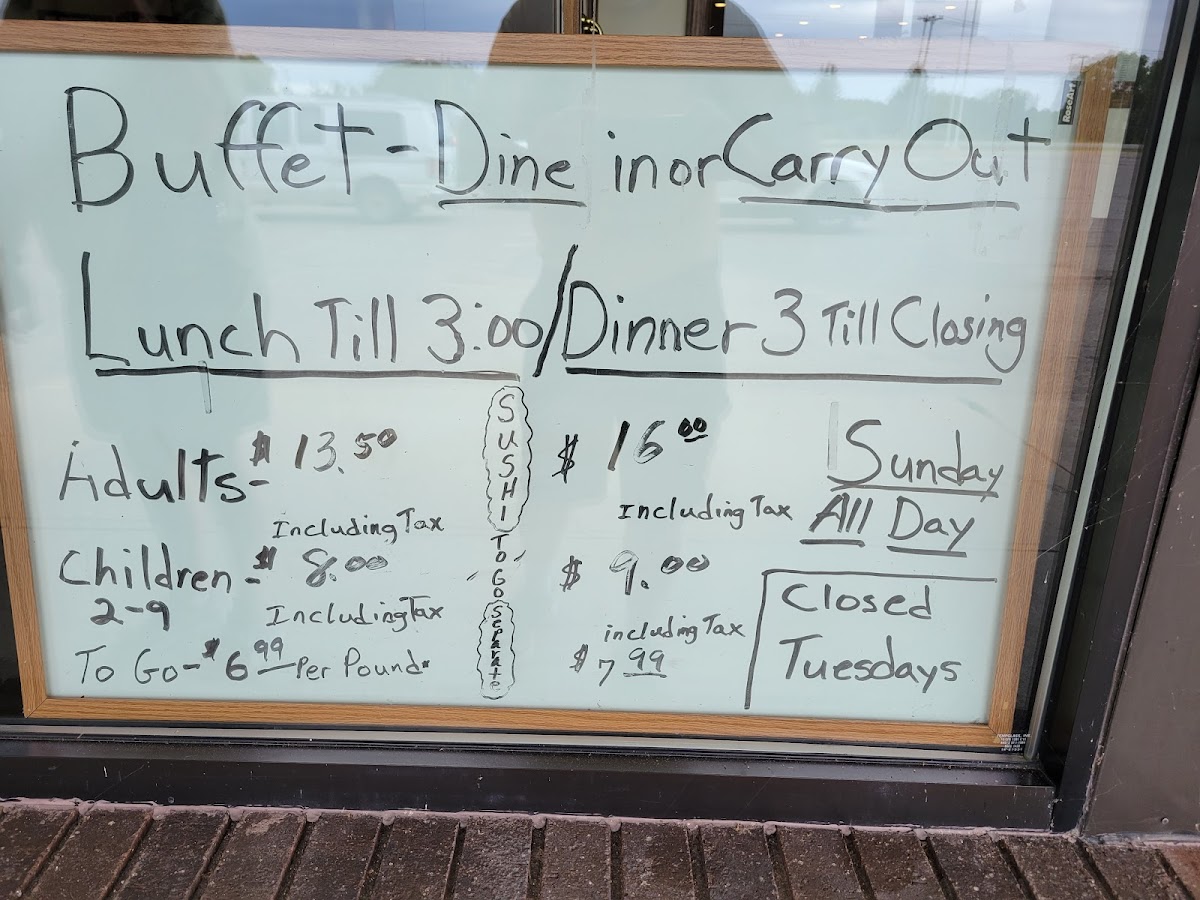 Buffet - Dine in or Carry Out
Lunch Till 3:00 / Dinner 3 Till Closing
Adults - $ 13.50
Including Tax
Children - $ 8.00
2-9
Including Tax
To Go - $ 6 99 Per Pound
SUSHI
TO GO
Separate
$ 16 00
Including Tax
$ 9.00
including Tax
$ 7 99
Sunday
All Day
Closed
Tuesdays
RoseArt